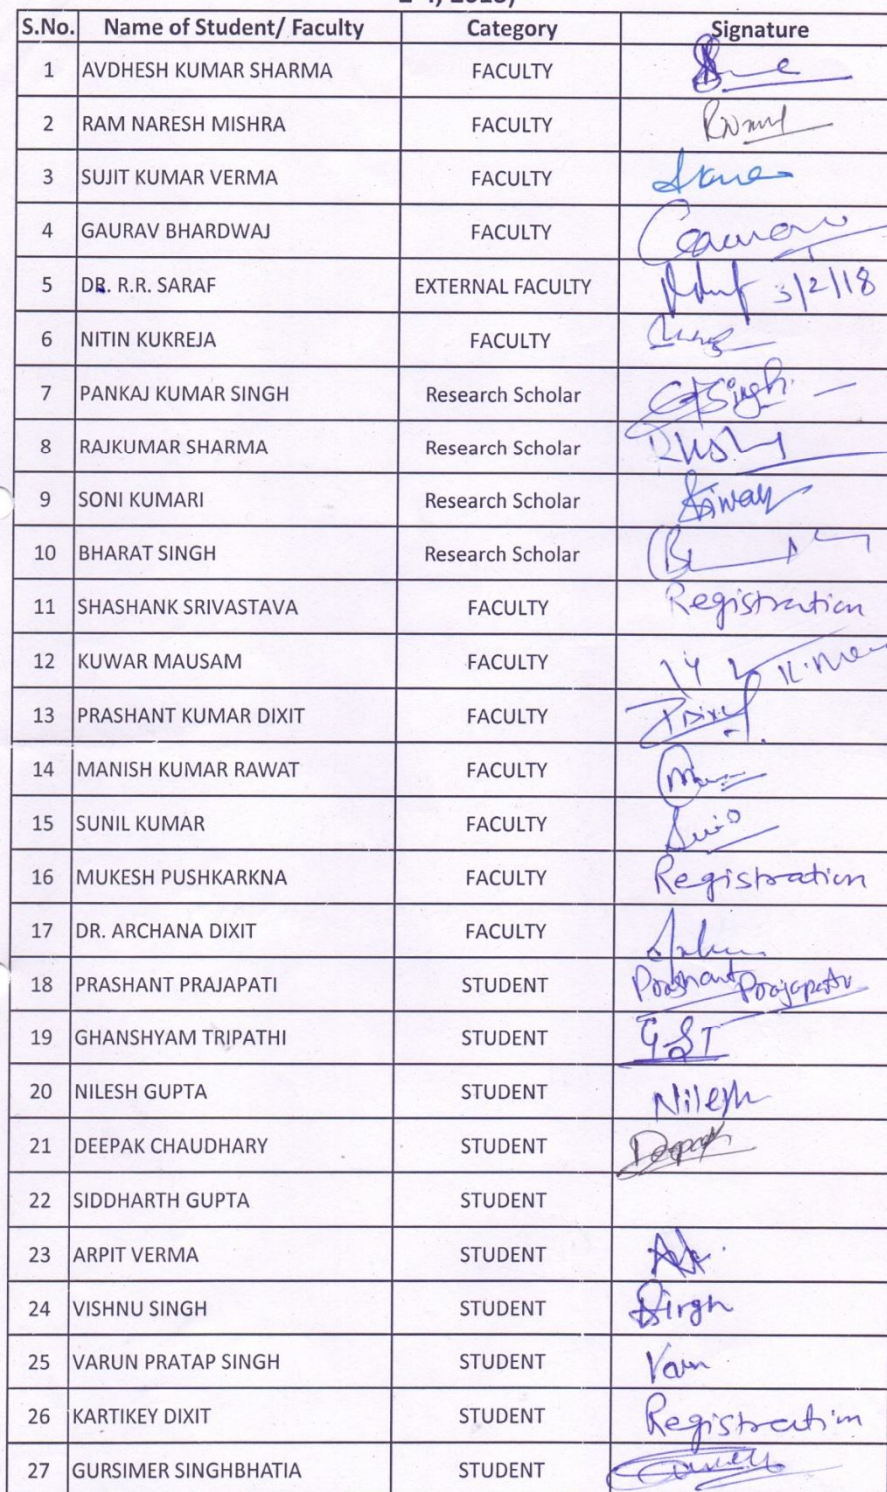 S.No. Name of Student/ Faculty Category Signature
1 AVDHESH KUMAR SHARMA FACULTY
2 RAM NARESH MISHRA FACULTY
3 SUJIT KUMAR VERMA FACULTY
4 GAURAV BHARDWAJ FACULTY
5 DR. R.R. SARAF EXTERNAL FACULTY 3/2/18
6 NITIN KUKREJA FACULTY
7 PANKAJ KUMAR SINGH Research Scholar Singh
8 RAJKUMAR SHARMA Research Scholar
9 SONI KUMARI Research Scholar
10 BHARAT SINGH Research Scholar
11 SHASHANK SRIVASTAVA FACULTY Registration
12 KUWAR MAUSAM FACULTY
13 PRASHANT KUMAR DIXIT FACULTY
14 MANISH KUMAR RAWAT FACULTY
15 SUNIL KUMAR FACULTY
16 MUKESH PUSHKARKNA FACULTY Registration
17 DR. ARCHANA DIXIT FACULTY
18 PRASHANT PRAJAPATI STUDENT Prashant Prajapati
19 GHANSHYAM TRIPATHI STUDENT GST
20 NILESH GUPTA STUDENT Nilesh
21 DEEPAK CHAUDHARY STUDENT Deepak
22 SIDDHARTH GUPTA STUDENT
23 ARPIT VERMA STUDENT
24 VISHNU SINGH STUDENT
25 VARUN PRATAP SINGH STUDENT
26 KARTIKEY DIXIT STUDENT Registration
27 GURSIMER SINGHBHATIA STUDENT